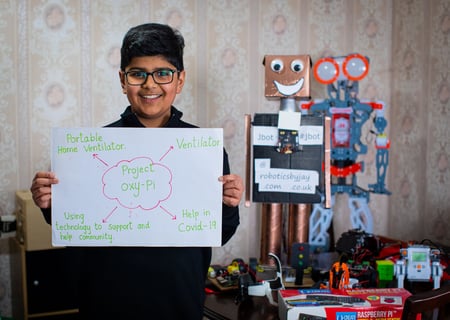 Portable
Home Ventilator
Ventilator
Project
oxy-Pi
Using
technology to support and
help community.
Help in
Covid-19
Jbot
#jbot
@
roboticsbyjay
.com .co.uk
RASPBERRY PI